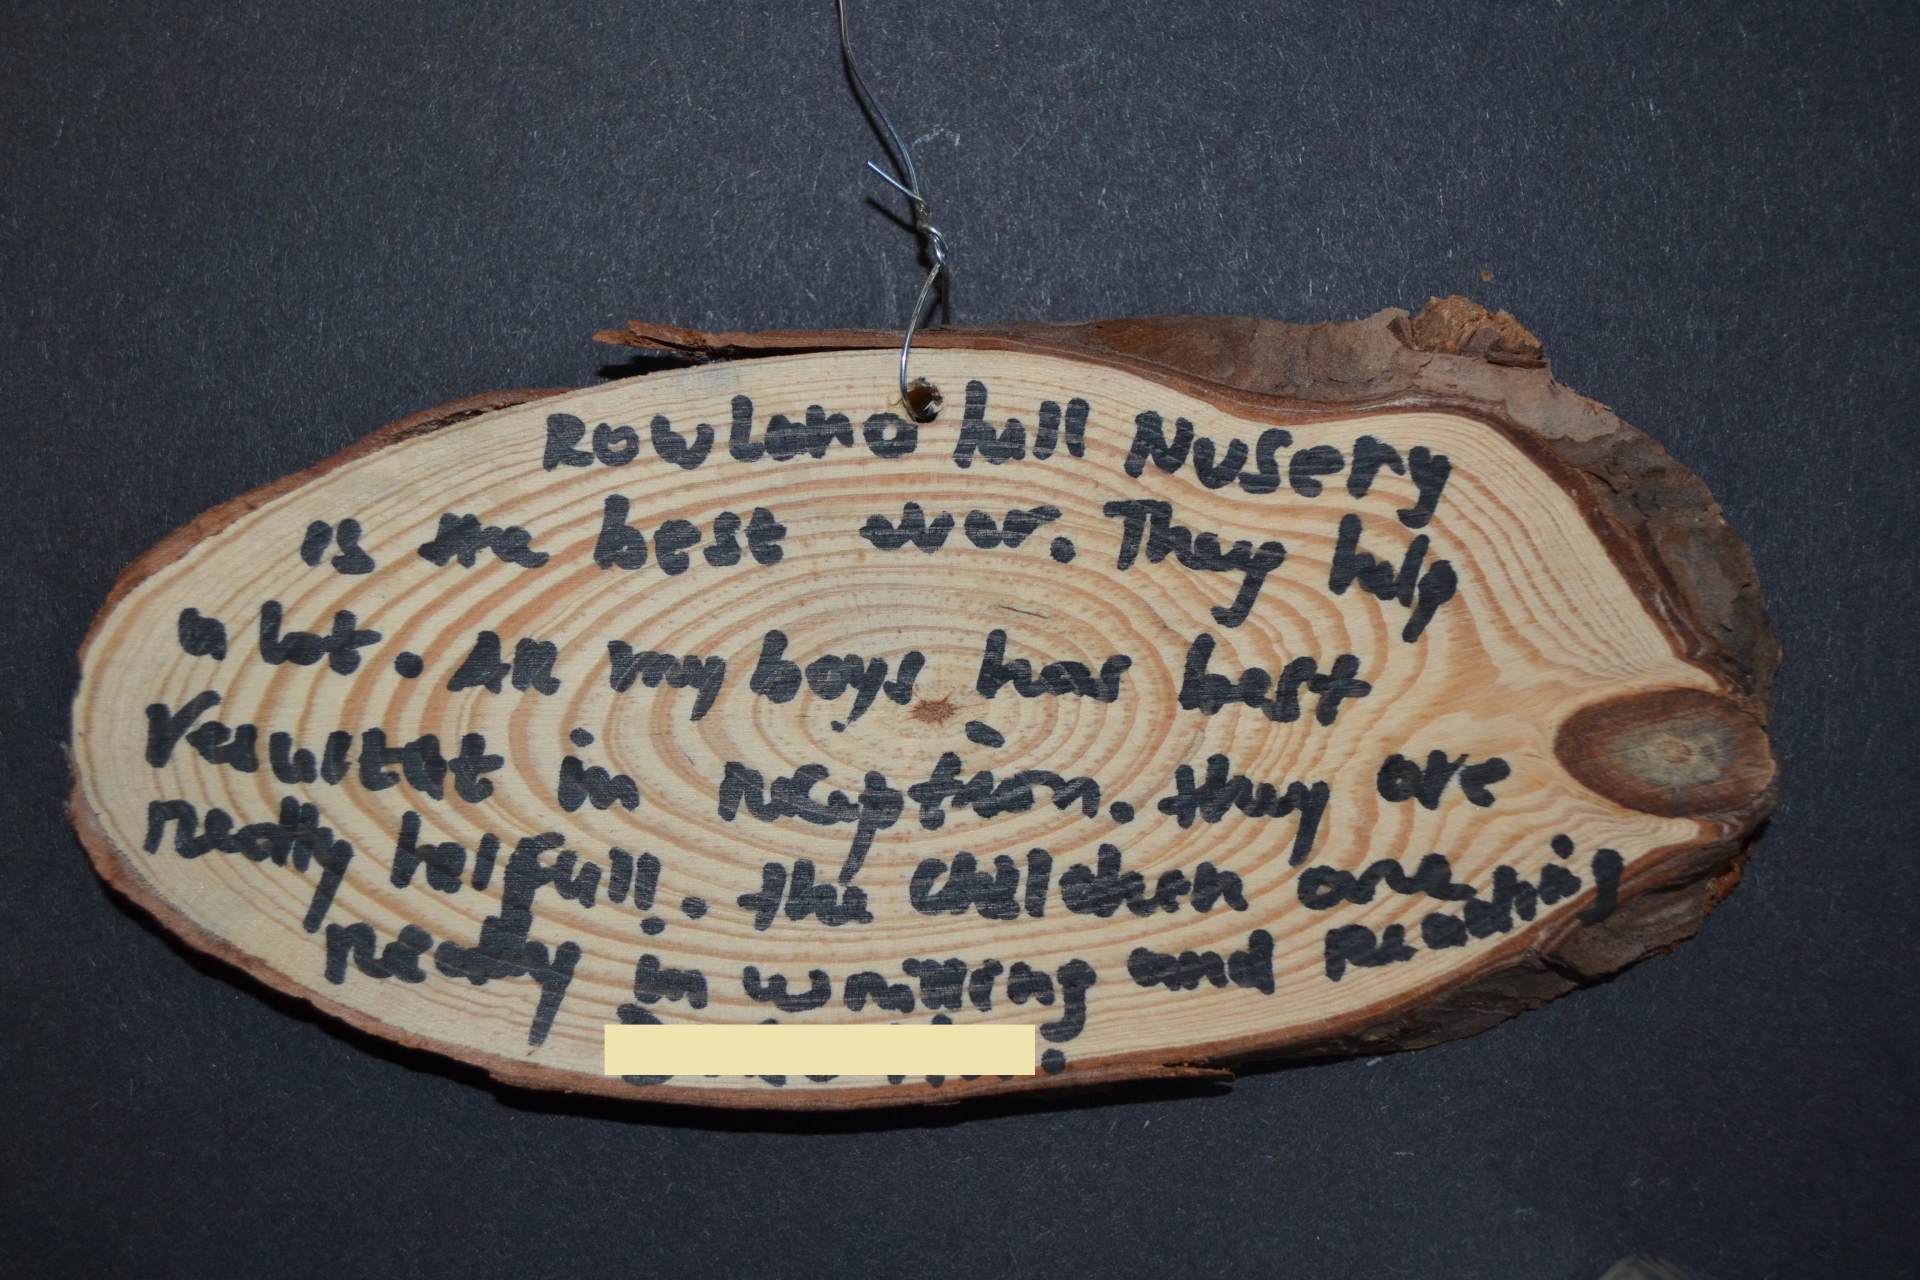 Rowland hill Nusery
is the best ever. They help
a lot. All my boys has best
resultat in reception. they are
really helfull. the children are
ready in writting and reading